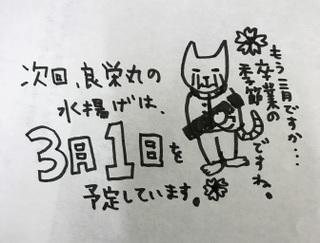 次回、良栄丸の
水揚げは、
3月1日を
予定しています。
もう三月ですか…
卒業の
季節ですね。